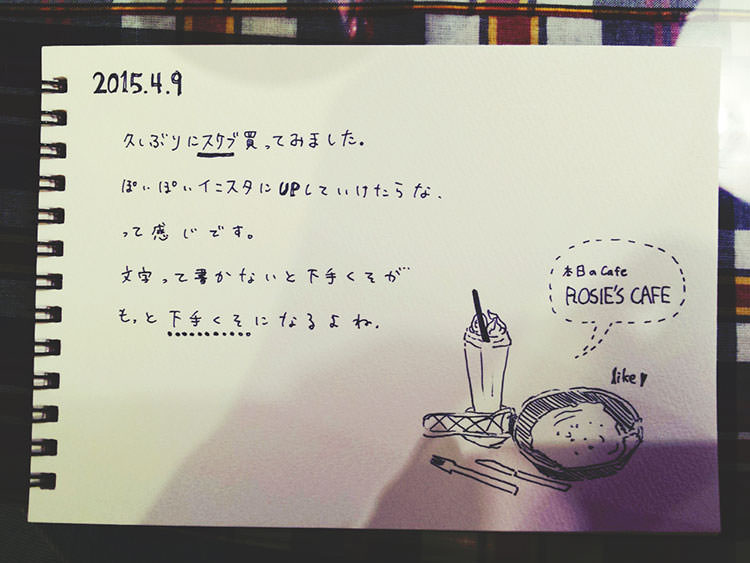 2015.4.9
久しぶりにスケブ買ってみました。
ぽいぽいインスタにUPしていけたらな、
って感じです。
文字って書かないと下手くそが
もっと下手くそになるよね.
本日のCafe
ROSIE'S CAFE
like♥